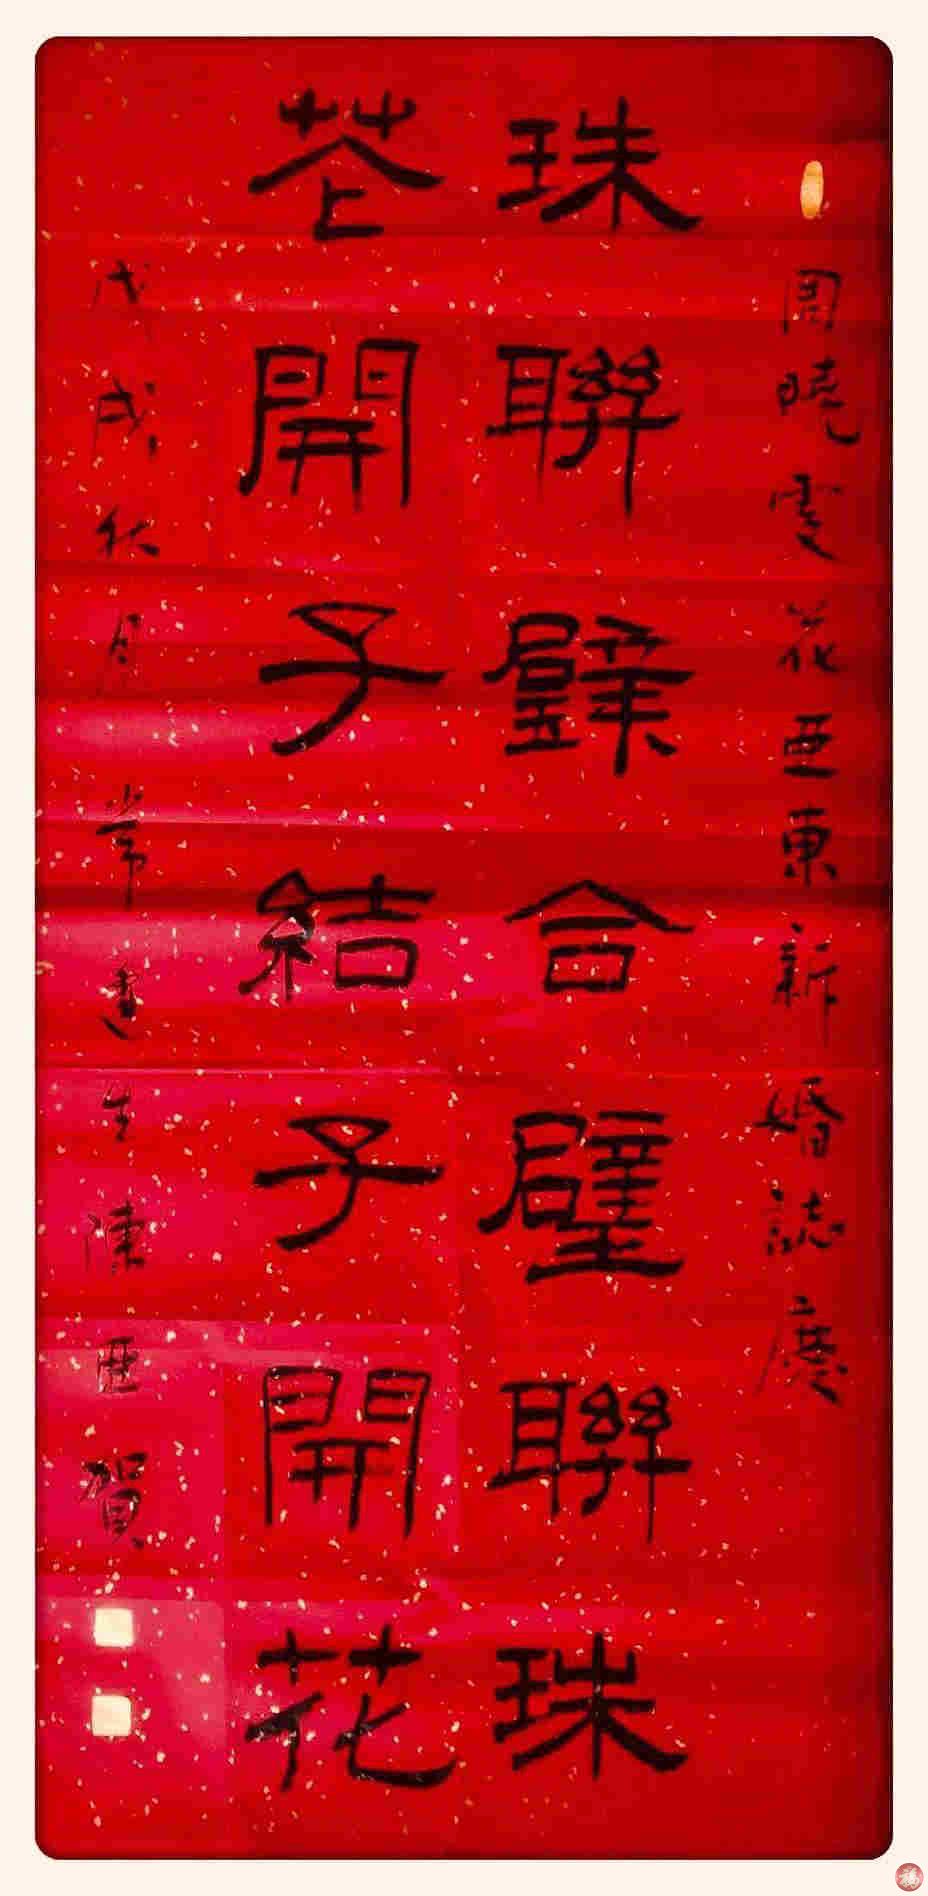 周曉雯花亞東新婚誌慶
珠聯璧合璧聯珠
花開子結子開花
戊戌秋月常生陳賀
福